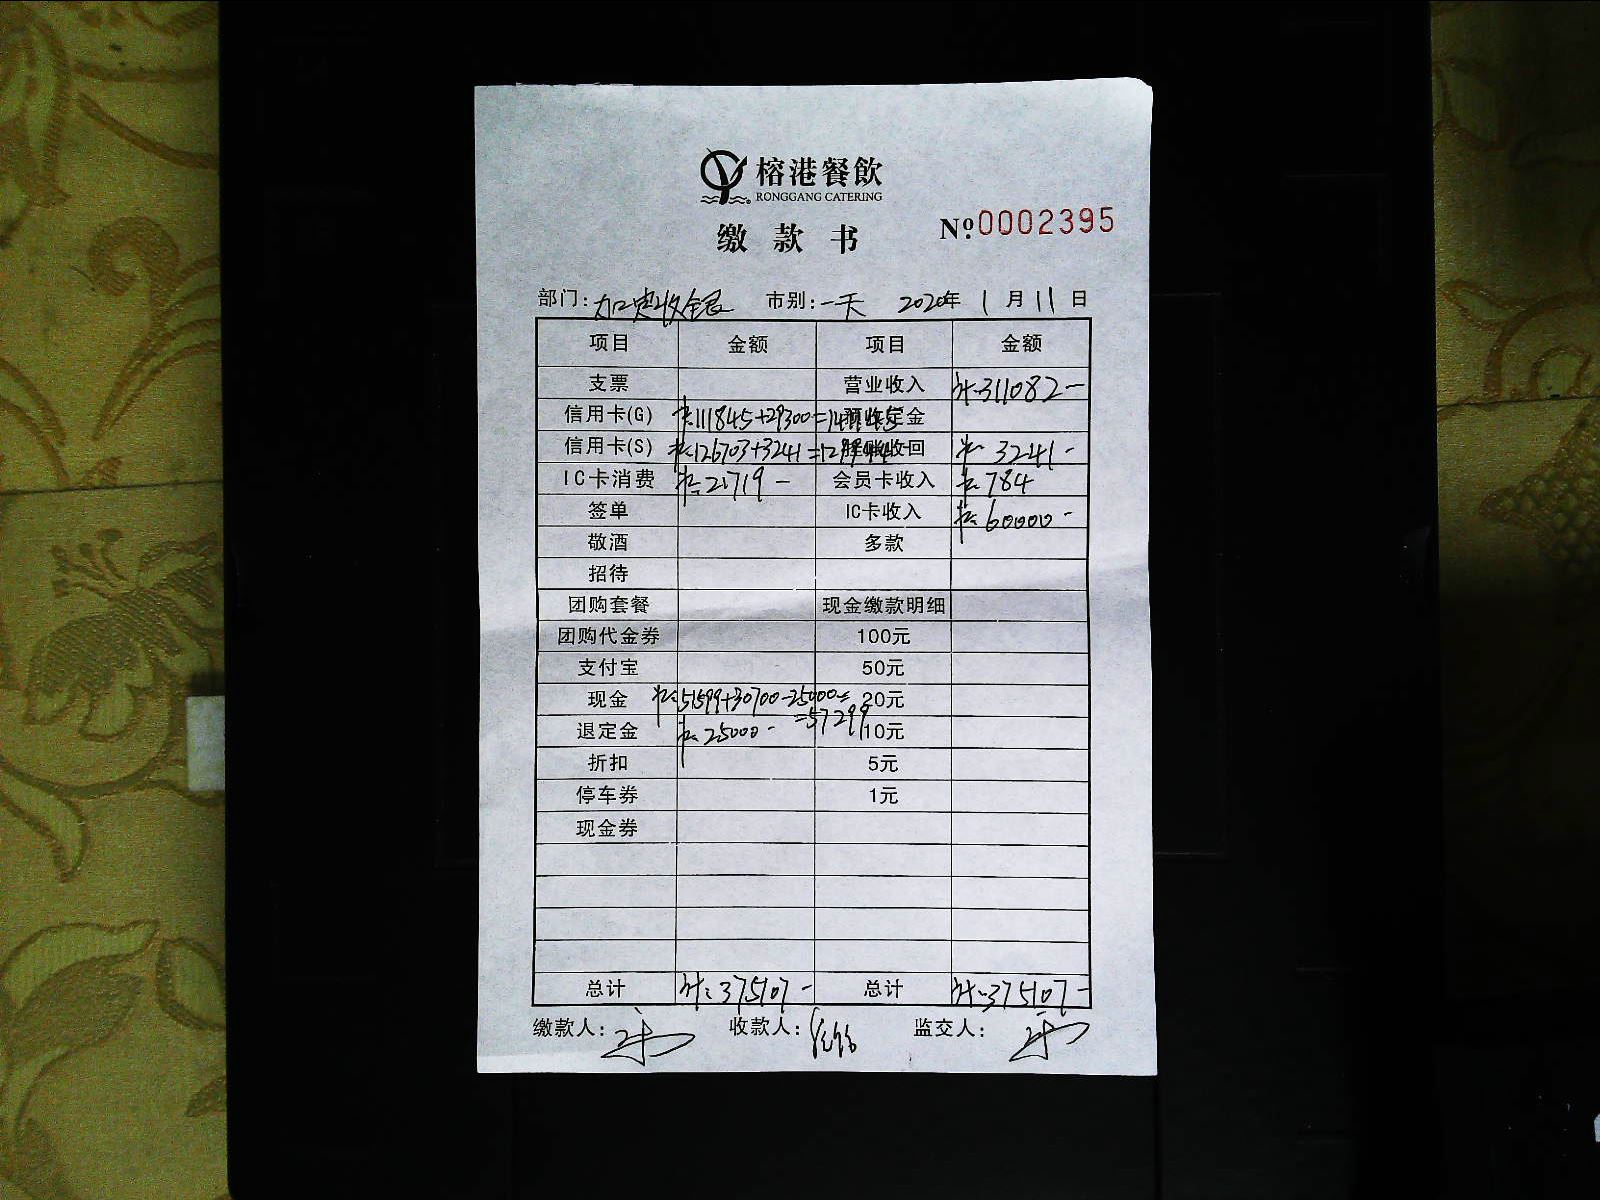 榕港餐飲
RONGGANG CATERING
缴款书 Nº 0002395
部门: 加 收银 市别: 一天 2020年 1月 11日
项目 金额 项目 金额
支票 营业收入 311082-
信用卡(G) 111845+29300=141145 预收定金
信用卡(S) 126703+3241=129944 挂账收回 3241-
IC卡消费 21719- 会员卡收入 784
签单 IC卡收入 60000-
敬酒 多款
招待
团购套餐 现金缴款明细
团购代金券 100元
支付宝 50元
现金 51599+30700-25000= 20元
=57299
退定金 25000- 10元
折扣 5元
停车券 1元
现金券
总计 375107- 总计 375107-
缴款人: 收款人: 监交人: